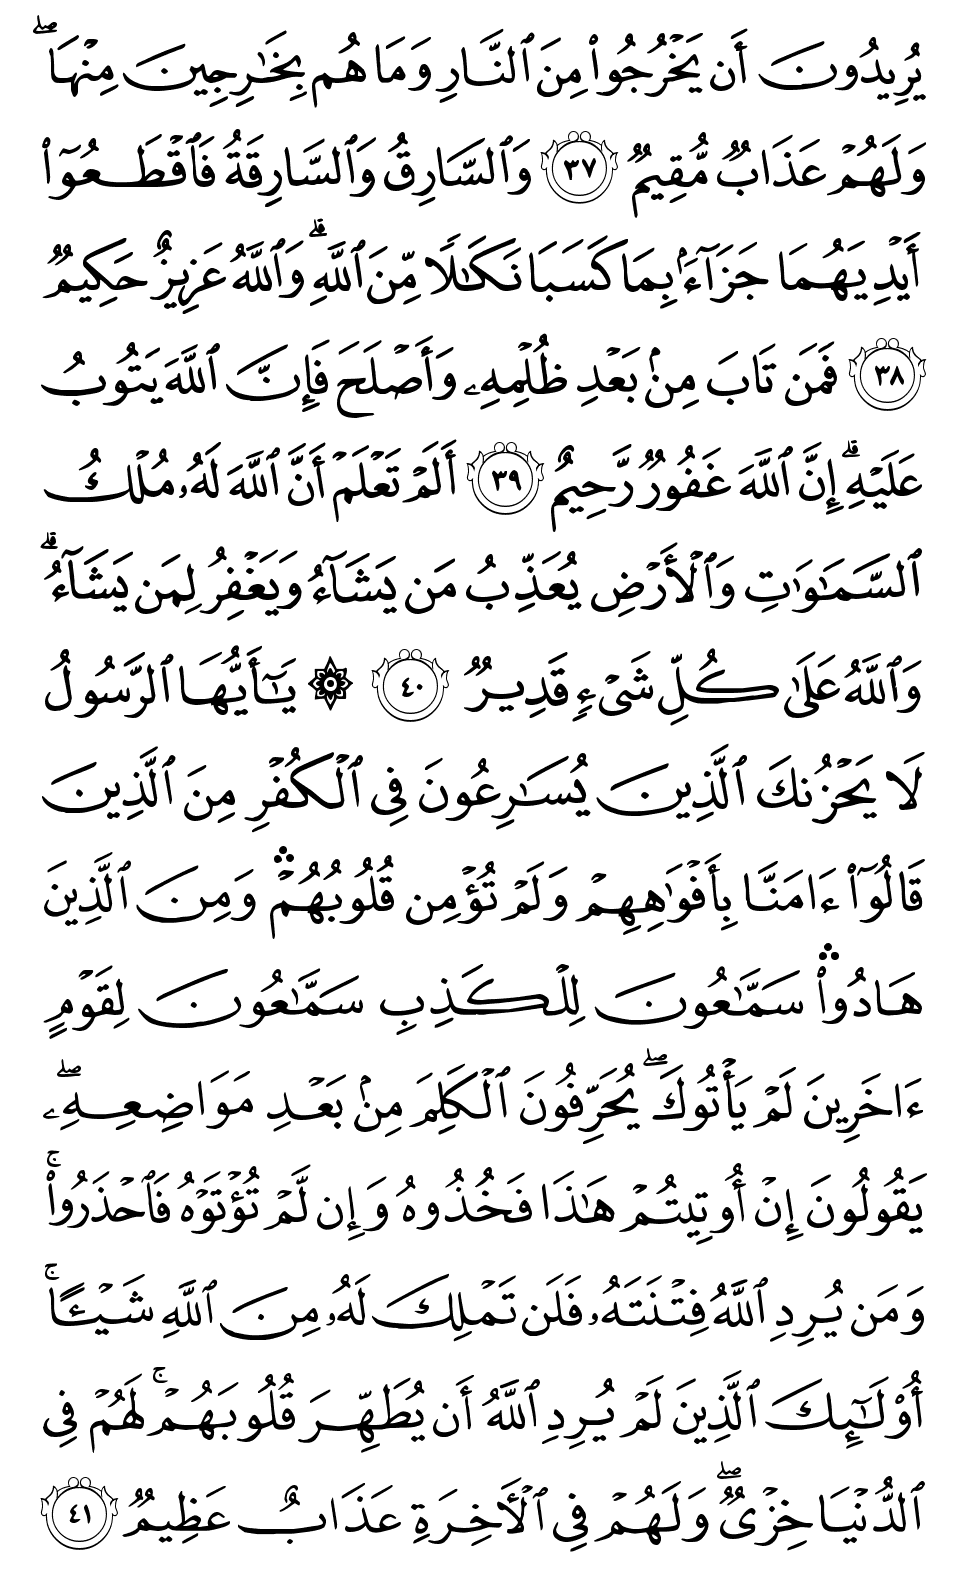 يُرِيدُونَ أَن يَخْرُجُوا۟ مِنَ ٱلنَّارِ وَمَا هُم بِخَٰرِجِينَ مِنْهَا ۖ
وَلَهُمْ عَذَابٌ مُّقِيمٌ ٣٧ وَٱلسَّارِقُ وَٱلسَّارِقَةُ فَٱقْطَعُوٓا۟
أَيْدِيَهُمَا جَزَآءَۢ بِمَا كَسَبَا نَكَٰلًا مِّنَ ٱللَّهِ ۗ وَٱللَّهُ عَزِيزٌ حَكِيمٌ
٣٨ فَمَن تَابَ مِنۢ بَعْدِ ظُلْمِهِۦ وَأَصْلَحَ فَإِنَّ ٱللَّهَ يَتُوبُ
عَلَيْهِ ۗ إِنَّ ٱللَّهَ غَفُورٌ رَّحِيمٌ ٣٩ أَلَمْ تَعْلَمْ أَنَّ ٱللَّهَ لَهُۥ مُلْكُ
ٱلسَّمَٰوَٰتِ وَٱلْأَرْضِ يُعَذِّبُ مَن يَشَآءُ وَيَغْفِرُ لِمَن يَشَآءُ ۗ
وَٱللَّهُ عَلَىٰ كُلِّ شَىْءٍ قَدِيرٌ ٤٠ ۞ يَٰٓأَيُّهَا ٱلرَّسُولُ
لَا يَحْزُنكَ ٱلَّذِينَ يُسَٰرِعُونَ فِى ٱلْكُفْرِ مِنَ ٱلَّذِينَ
قَالُوٓا۟ ءَامَنَّا بِأَفْوَٰهِهِمْ وَلَمْ تُؤْمِن قُلُوبُهُمْ ۛ وَمِنَ ٱلَّذِينَ
هَادُوا۟ ۛ سَمَّٰعُونَ لِلْكَذِبِ سَمَّٰعُونَ لِقَوْمٍ
ءَاخَرِينَ لَمْ يَأْتُوكَ ۖ يُحَرِّفُونَ ٱلْكَلِمَ مِنۢ بَعْدِ مَوَاضِعِهِۦ ۖ
يَقُولُونَ إِنْ أُوتِيتُمْ هَٰذَا فَخُذُوهُ وَإِن لَّمْ تُؤْتَوْهُ فَٱحْذَرُوا۟ ۚ
وَمَن يُرِدِ ٱللَّهُ فِتْنَتَهُۥ فَلَن تَمْلِكَ لَهُۥ مِنَ ٱللَّهِ شَيْـًٔا ۚ
أُو۟لَٰٓئِكَ ٱلَّذِينَ لَمْ يُرِدِ ٱللَّهُ أَن يُطَهِّرَ قُلُوبَهُمْ ۚ لَهُمْ فِى
ٱلدُّنْيَا خِزْىٌ ۖ وَلَهُمْ فِى ٱلْءَاخِرَةِ عَذَابٌ عَظِيمٌ ٤١